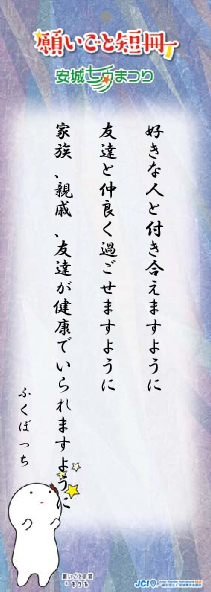 願いごと短冊
安城七夕まつり
好きな人と付き合えますように
友達と仲良く過ごせますように
家族、親戚、友達が健康でいられますように
ふくぼっち
願いごと短冊
JCI